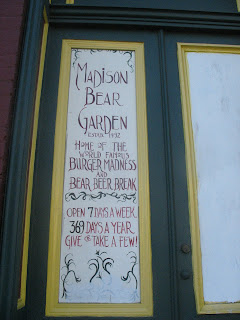 MADISON
BEAR
GARDEN
ESTAB. 1492
HOME OF THE
WORLD FAMOUS
BURGER MADNESS
AND
BEAR BEER BREAK
OPEN 7 DAYS A WEEK,
369 DAYS A YEAR
GIVE OR TAKE A FEW!